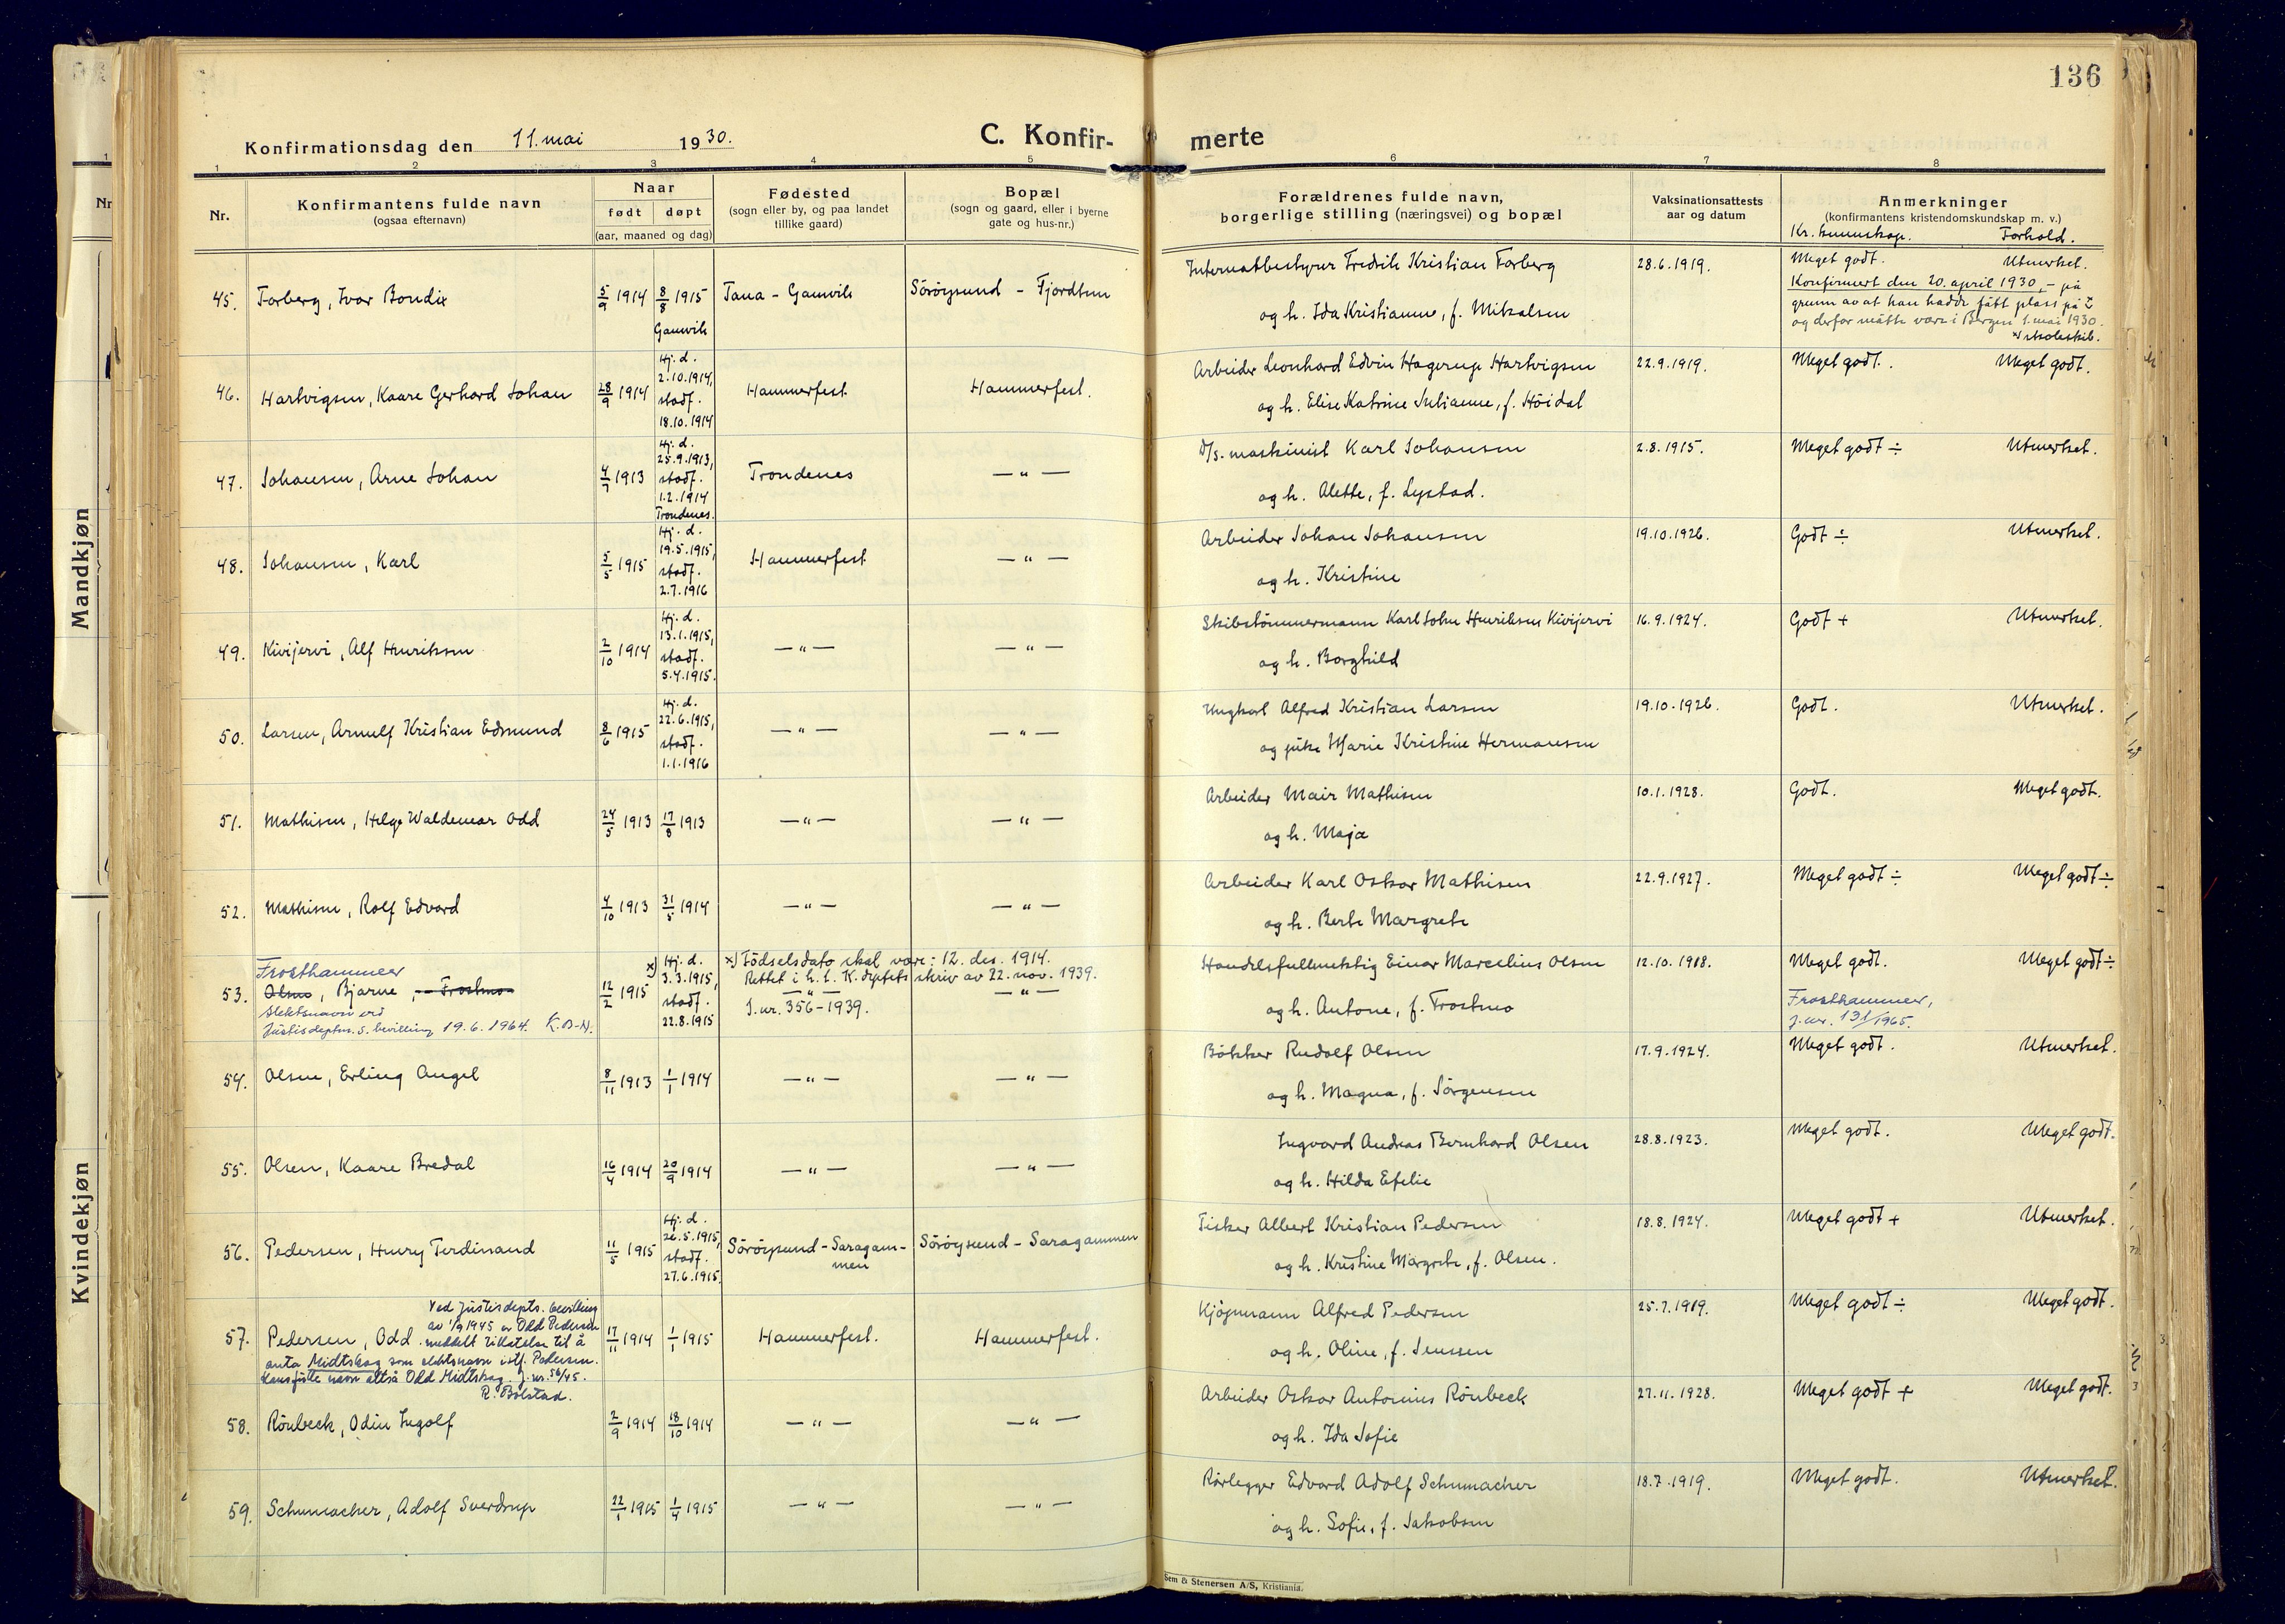 136
Konfirmationsdag den 11. mai 1930.
C. Konfir-
merte
1 2 3 4 5 6 7 8
Nr.
Konfirmantens fulde navn
(ogsaa efternavn)
Naar
født døpt
(aar, maaned og dag)
Fødested
(sogn eller by, og paa landet
tillike gaard)
Bopæl
(sogn og gaard, eller i byerne
gate og hus-nr.)
Forældrenes fulde navn,
borgerlige stilling (næringsvei) og bopæl
Vaksinationsattests
aar og datum
Anmerkninger
(konfirmantens kristendomskundskap m. v.)
Kr. kunnskap. Forhold.
Mandkjøn
Kvindekjøn
45. Forberg, Ivar Bondix 5/9 1914 8/8 1915 Gamvik Tana - Gamvik Söröysund - Fjordtun
Internatbestyrer Fredrik Kristian Forberg 28.6.1919. Meget godt. Utmerket.
og h. Ida Kristianne, f. Mikalsen
Konfirmert den 20. april 1930, - på
grunn av at han hadde fått plass på
og derfor måtte være i Bergen 1. mai 1930.
x) skoleskib.
46. Hartvigsen, Kaare Gerhard Johan 28/9 1914 Hj. d. 2.10.1914, stadf. 18.10.1914 Hammerfest Hammerfest.
Arbeider Leonhard Edvin Hagerup Hartvigsen 22.9.1919. Meget godt. Meget godt.
og h. Elise Katrine Julianne, f. Höidal
47. Johansen, Arne Johan 4/9 1913 Hj. d. 25.9.1913, stadf. 1.2.1914 Trondenes. Trondenes — " —
D/s. maskinist Karl Johansen 2.8.1915. Meget godt ÷ Utmerket.
og h. Alette, f. Lystad.
48. Johansen, Karl 5/5 1915 Hj. d. 19.5.1915, stadf. 2.7.1916 Hammerfest — " —
Arbeider Johan Johansen 19.10.1926. Godt ÷ Utmerket.
og h. Kristine
49. Kivijervi, Alf Henriksen 2/10 1914 Hj. d. 13.1.1915, stadf. 5.4.1915. — " — — " —
Skibstömmermann Karl John Henriksen Kivijervi 16.9.1924. Godt + Utmerket.
og h. Borghild
50. Larsen, Arnulf Kristian Edmund 8/6 1915 Hj. d. 22.6.1915, stadf. 1.1.1916 — " — — " —
Ungkarl Alfred Kristian Larsen 19.10.1926. Godt. Utmerket.
og pike Marie Kristine Hermansen
51. Mathisen, Helge Waldemar Odd 24/5 1913 17/8 1913 — " — — " —
Arbeider Mair Mathisen 10.1.1928. Godt. Meget godt.
og h. Maja
52. Mathisen, Rolf Edvard 4/10 1913 31/5 1914 — " — — " —
Arbeider Karl Oskar Mathisen 22.9.1927. Meget godt ÷ Meget godt ÷
og h. Berte Margrete
Frosthammer
53. Olsen, Bjarne, - Frostmo 12/2 1915 x) Hj. d. 3.3.1915, stadf. 22.8.1915 — " — — " —
slektsnavn ved
Justisdeptm.s. bevilling 19.6.1964. K.B-N.
x) Födselsdato skal være: 12. des. 1914.
Rettet i h. t. K. deptets skriv av 22. nov. 1939.
J. nr. 356-1939.
Handelsfullmektig Einar Marcelius Olsen 12.10.1918. Meget godt. Meget godt ÷
og h. Antone, f. Frostmo
Frosthammer,
J. nr. 131/1965.
54. Olsen, Erling Angel 8/11 1913 1/1 1914 — " — — " —
Bökker Rudolf Olsen 17.9.1924. Meget godt. Utmerket.
og h. Magna, f. Jörgensen
55. Olsen, Kaare Bredal 16/4 1914 20/9 1914 — " — — " —
Ingvard Andreas Bernhard Olsen 28.8.1923. Meget godt. Meget godt.
og h. Hilda Efelie
56. Pedersen, Henry Ferdinand 11/5 1915 Hj. d. 26.5.1915, stadf. 27.6.1915. Söröysund - Saragammen Söröysund - Saragammen
Fisker Albert Kristian Pedersen 18.8.1924. Meget godt + Utmerket.
og h. Kristine Margrete, f. Olsen.
57. Pedersen, Odd 17/11 1914 1/1 1915 Hammerfest. Hammerfest.
Ved Justisdepts. bevilling
av 1/9 1945 er Odd Pedersen
meddelt tillatelse til å
anta Midtskog som slektsnavn istf. Pedersen.
Hans fulle navn altså Odd Midtskog. J. nr. 56/45.
R. Bolstad.
Kjögmann Alfred Pedersen 25.7.1919. Meget godt ÷ Meget godt.
og h. Oline, f. Jenssen
58. Rönbeck, Odin Ingolf 2/9 1914 18/10 1914 — " — — " —
Arbeider Oskar Antonius Rönbeck 27.11.1928. Meget godt + Meget godt.
og h. Ida Sofie
59. Schumacher, Adolf Sverdrup 22/1 1915 1/4 1915 — " — — " —
Rörlegger Edvard Adolf Schumacher 18.7.1919. Meget godt. Utmerket.
og h. Sofie, f. Jakobsen
Sem & Stenersen A/S, Kristiania.